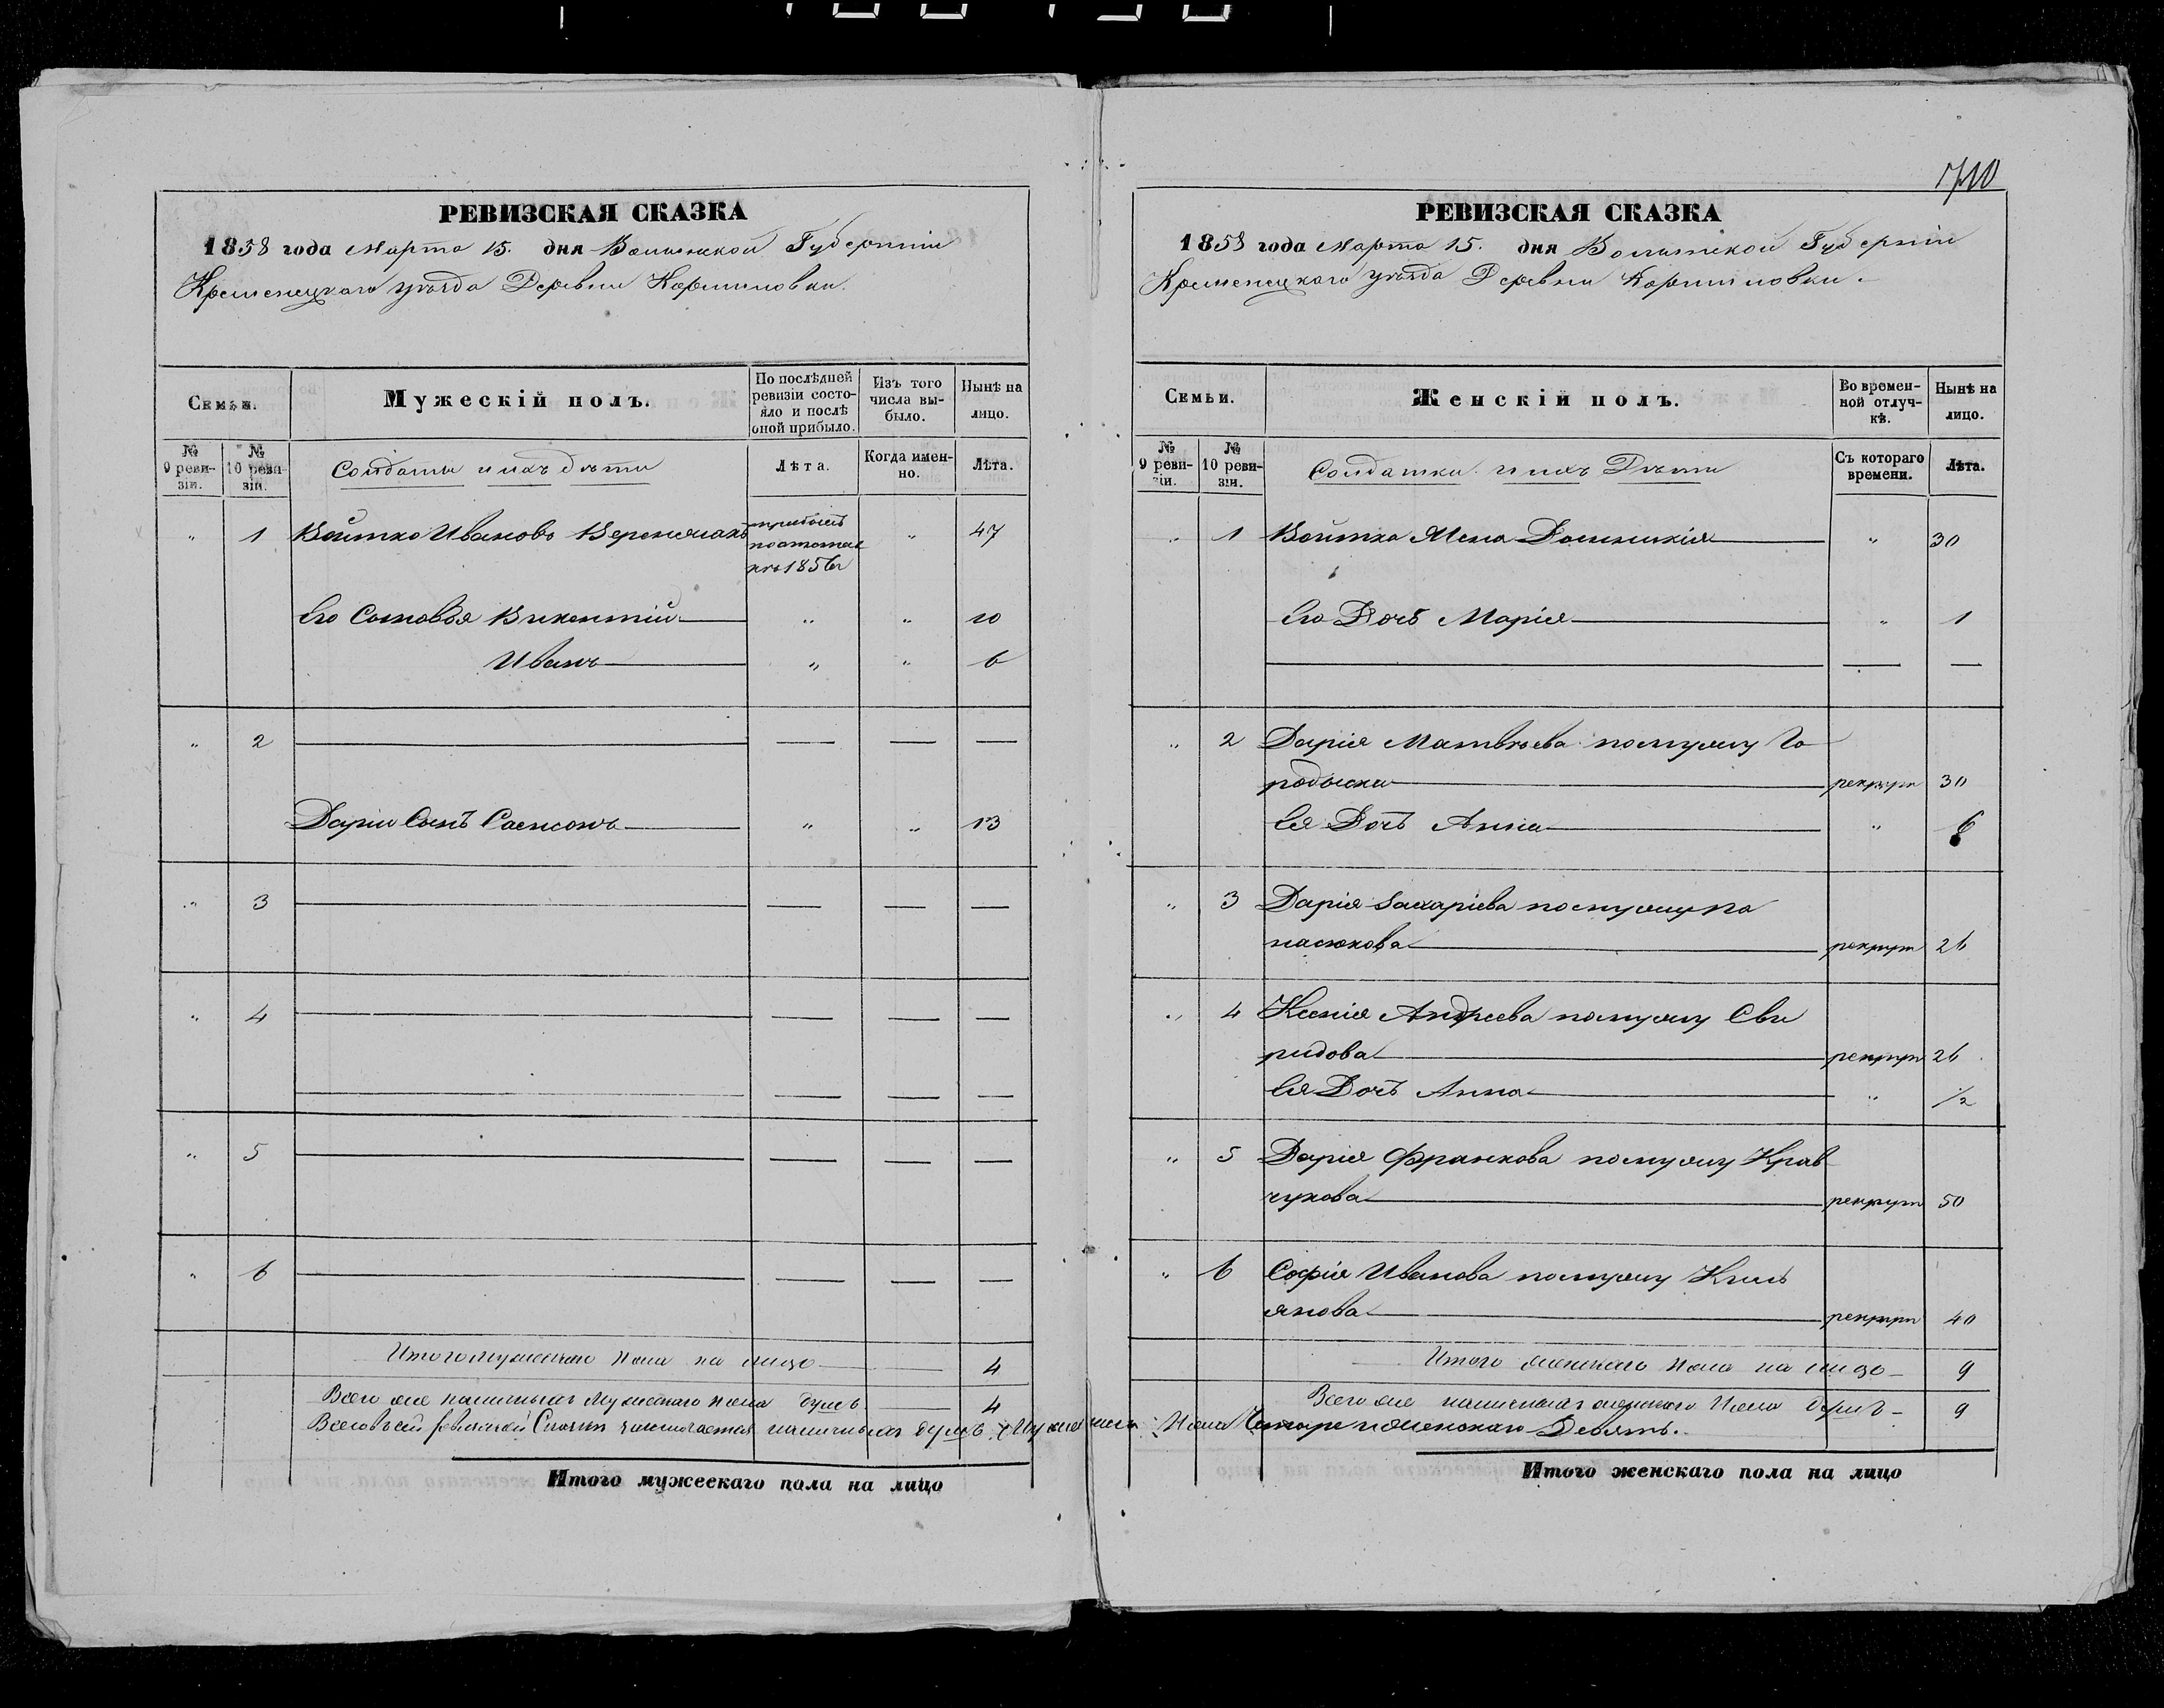 РЕВИЗСКАЯ СКАЗКА
1858 года Марта 15. дня Волынской Губерніи
Кременецкаго уѣзда Деревни Коршиловки.
Семьи.
Мужескій полъ.
По послѣдней ревизіи состояло и послѣ оной прибыло.
Изъ того числа выбыло.
Нынѣ на лицо.
№ 9 ревизіи.
№ 10 ревизіи.
Солдаты и ихъ дѣти
Лѣта.
Когда именно.
Лѣта.
" 1 Войтко Ивановъ " 47
1856
Его Сыновья Викентій " " 10
Иванъ " " 6
" 2
Даріи Сынъ Самсонъ " " 13
" 3
" 4
" 5
" 6
Итого мужескаго пола на лицо 4
Всего же наличныхъ Мужескаго пола душъ 4
Всего въ сей ревизской Сказкѣ заключается наличныхъ душъ Мужескаго Пола Четыре и Женскаго Девять.
Итого мужескаго пола на лицо
710
РЕВИЗСКАЯ СКАЗКА
1858 года Марта 15. дня Волынской Губерніи
Кременецкаго уѣзда Деревни Коршиловки.
Семьи.
Женскій полъ.
Во временной отлучкѣ.
Нынѣ на лицо.
№ 9 ревизіи.
№ 10 ревизіи.
Солдатки и ихъ Дѣти
Съ котораго времени.
Лѣта.
" 1 Войтка Жена " 30
Его Дочь Марія " 1
" 2 Дарія Матвѣева по мужу Го
родыска рекрут 30
Ея Дочь Анна " 6
" 3 Дарія Захаріева по мужу Па
насюкова рекрут 26
" 4 Ксенія Андреева по мужу Сви
ридова рекрут 26
Ея Дочь Анна " 1/2
" 5 Дарія Франкова по мужу Крав
чукова рекрут 50
" 6 Софія Иванова по мужу
янова рекрут 40
Итого женскаго пола на лицо 9
Всего же наличныхъ женскаго Пола душъ 9
Итого женскаго пола на лицо